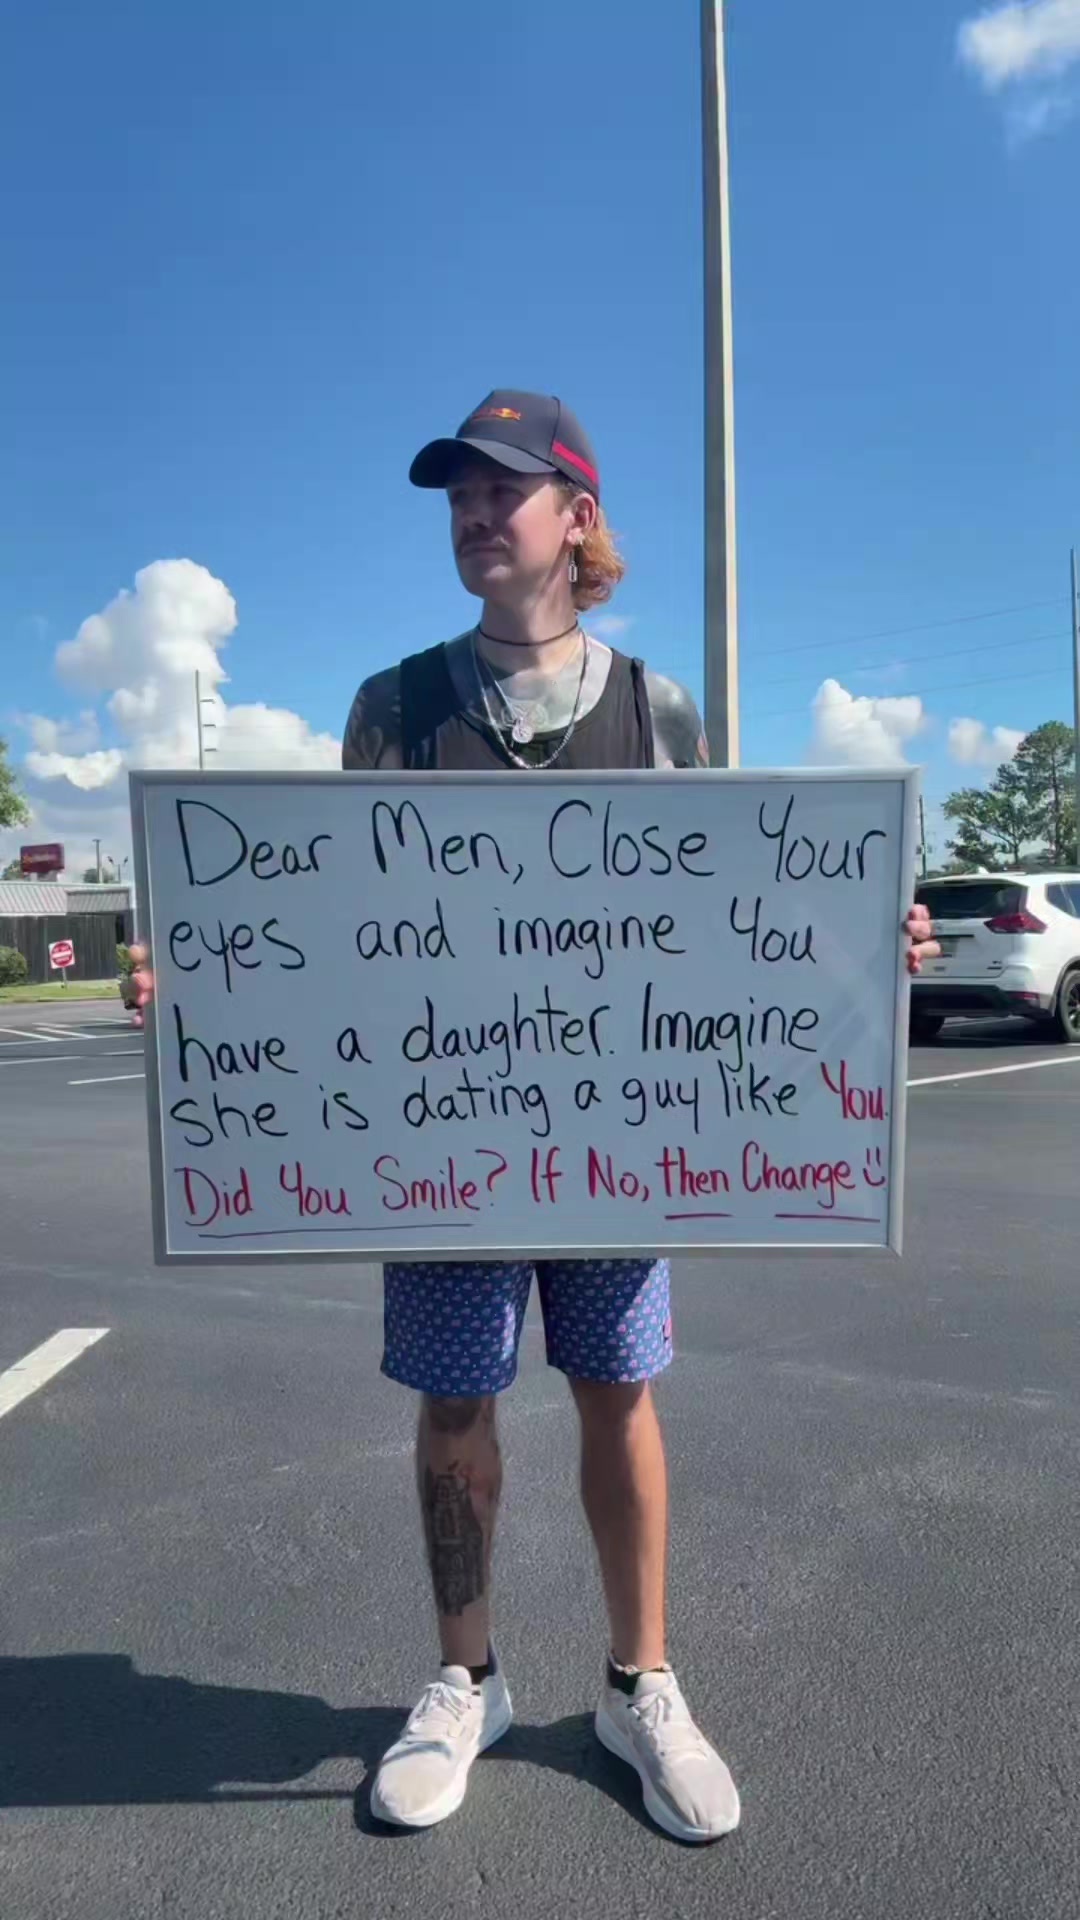 Dear Men, Close Your
eyes and imagine You
have a daughter. Imagine
She is dating a guy like You.
Did You Smile? If No, then Change :)